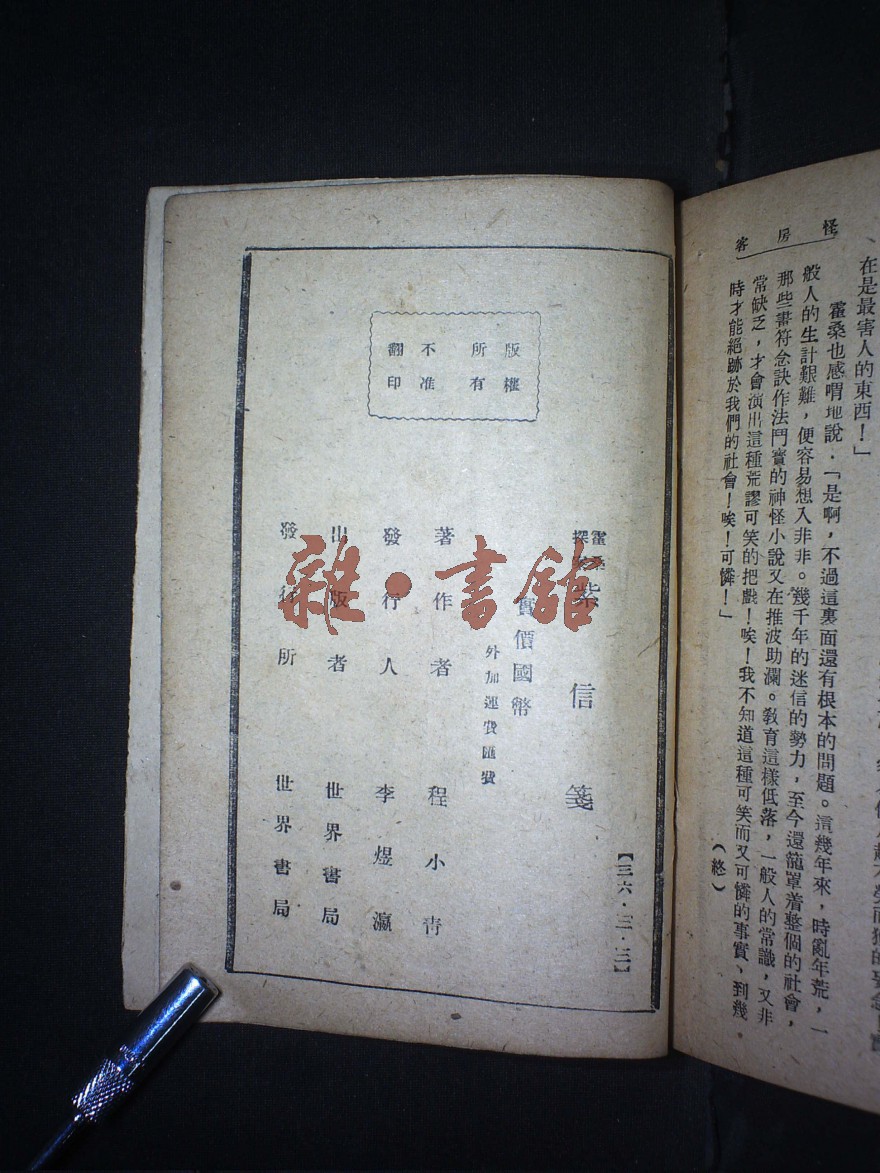 怪房客
、在是最害人的東西！」
霍桑也感喟地說．「是啊，不過這裏面還有根本的問題。這幾年來，時亂年荒，一
般人的生計艱難，便容易想入非非。幾千年的迷信的勢力，至今還籠罩着整個的社會，
那些畫符念訣作法鬥寶的神怪小說又在推波助瀾。教育這樣低落，一般人的常識，又非
常缺乏，才會演出這種荒謬可笑的把戲！唉！我不知道這種可笑而又可憐的事實、到幾
時才能絕跡於我們的社會！唉！可憐！」
（終）
版權
所有
不准
翻印
【三六·三·三】
霍桑
探
紫信箋
實價國幣
外加運費匯費
著作者 程小青
發行人 李煜瀛
出版者 世界書局
發行所 世界書局
雜·書館